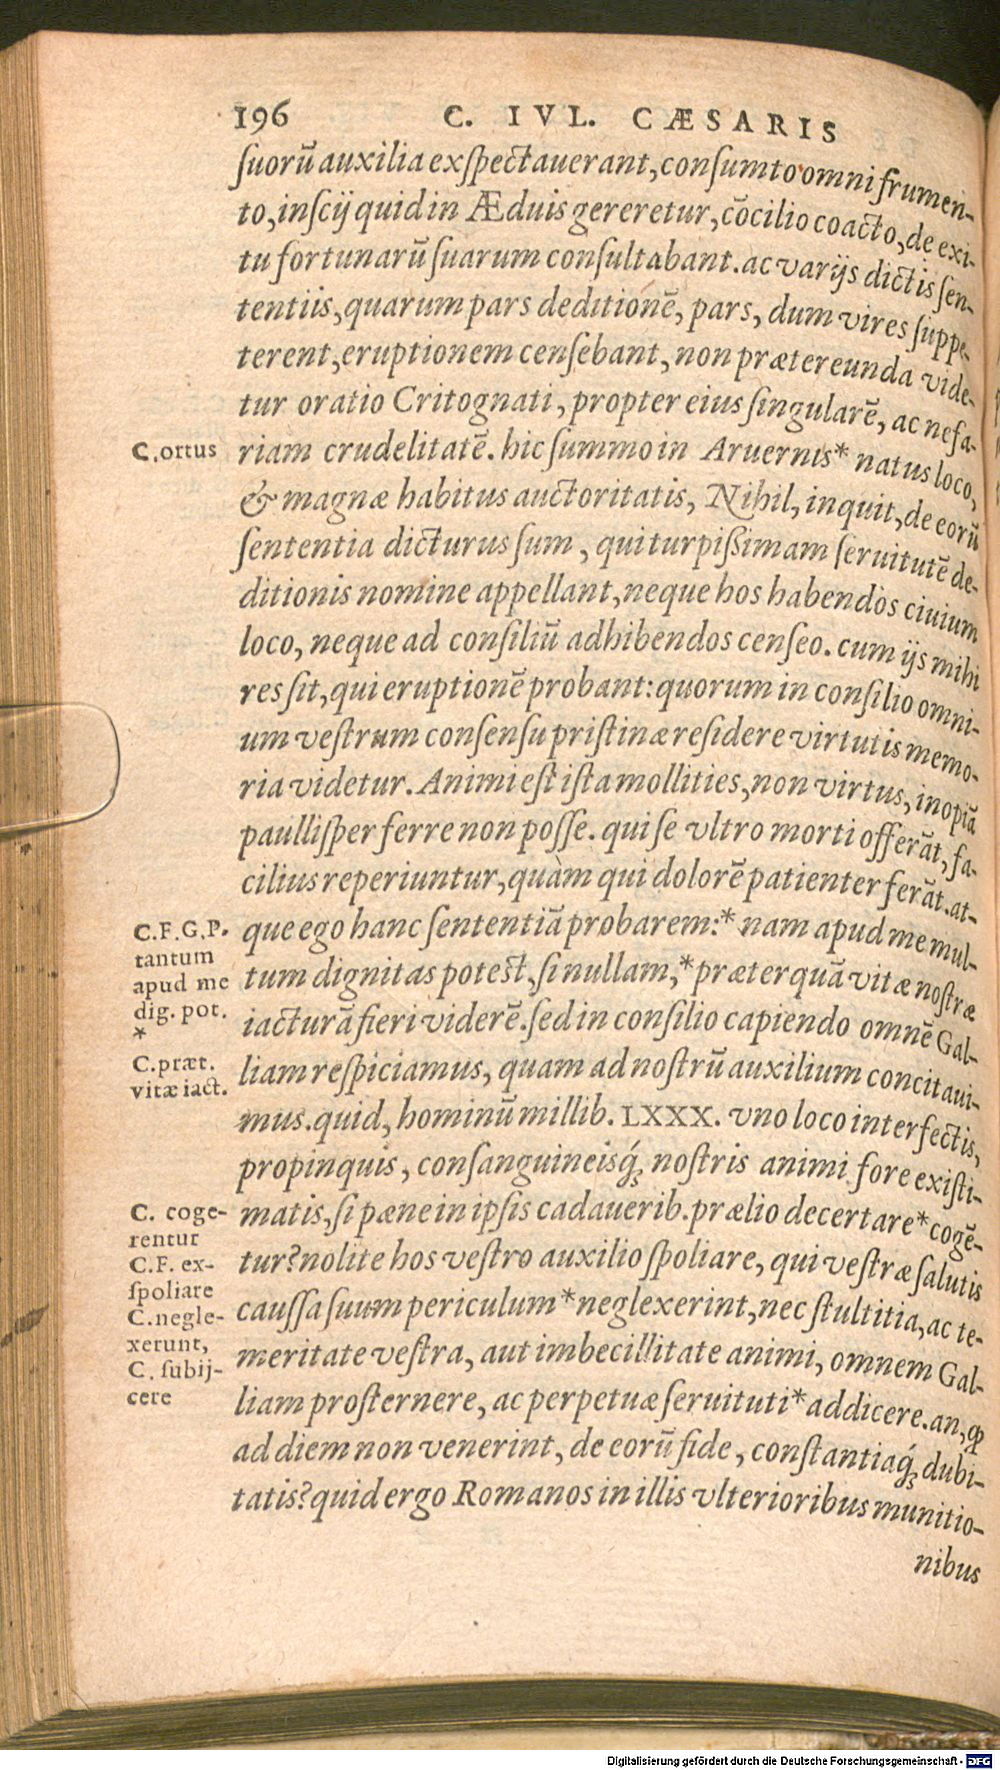 196 C. IVL. CÆSARIS
ſuorū auxilia exſpectauerant, conſumto omni frumen-
to, inſcij quid in Æduis gereretur, cōcilio coacto, de exi-
tu fortunarū ſuarum conſultabant. ac varijs dictis ſen-
tentiis, quarum pars deditionē, pars, dum vires ſuppe-
terent, eruptionem cenſebant, non prætereunda vide-
tur oratio Critognati, propter eius ſingularē, ac nefa-
C. ortus
riam crudelitatē. hic ſummo in Aruernis* natus loco,
& magnæ habitus auctoritatis, Nihil, inquit, de eorū
ſententia dicturus ſum, qui turpißimam ſeruitutē de-
ditionis nomine appellant, neque hos habendos ciuium
loco, neque ad conſiliū adhibendos cenſeo. cum ijs mihi
res ſit, qui eruptionē probant: quorum in conſilio omni-
um veſtrum conſenſu priſtinæ reſidere virtutis memo-
ria videtur. Animi eſt iſta mollities, non virtus, inopiā
paulliſper ferre non poſſe. qui ſe vltro morti offerāt, fa-
cilius reperiuntur, quàm qui dolorē patienter ferāt. at-
C.F.G.P.
tantum
apud me
dig. pot.
*
C. præt.
vitæ iact.
que ego hanc ſententiā probarem:* nam apud me mul-
tum dignitas poteſt, ſi nullam,* præterquā vitæ noſtræ
iacturā fieri viderē. ſed in conſilio capiendo omnē Gal-
liam reſpiciamus, quam ad noſtrū auxilium concitaui-
mus. quid, hominū millib. LXXX. vno loco interfectis,
propinquis, conſanguineisq́; noſtris animi fore exiſti-
C. coge-
rentur
C.F. ex-
ſpoliare
C. negle-
xerunt,
C. ſubij-
cere
matis, ſi pæne in ipſis cadauerib. prælio decertare* cogē-
tur? nolite hos veſtro auxilio ſpoliare, qui veſtræ ſalutis
cauſſa ſuum periculum* neglexerint, nec ſtultitia, ac te-
meritate veſtra, aut imbecillitate animi, omnem Gal-
liam proſternere, ac perpetuæ ſeruituti* addicere. an, ꝙ
ad diem non venerint, de eorū fide, conſtantiaq́; dubi-
tatis? quid ergo Romanos in illis vlterioribus munitio-
nibus
Digitalisierung gefördert durch die Deutsche Forschungsgemeinschaft - DFG